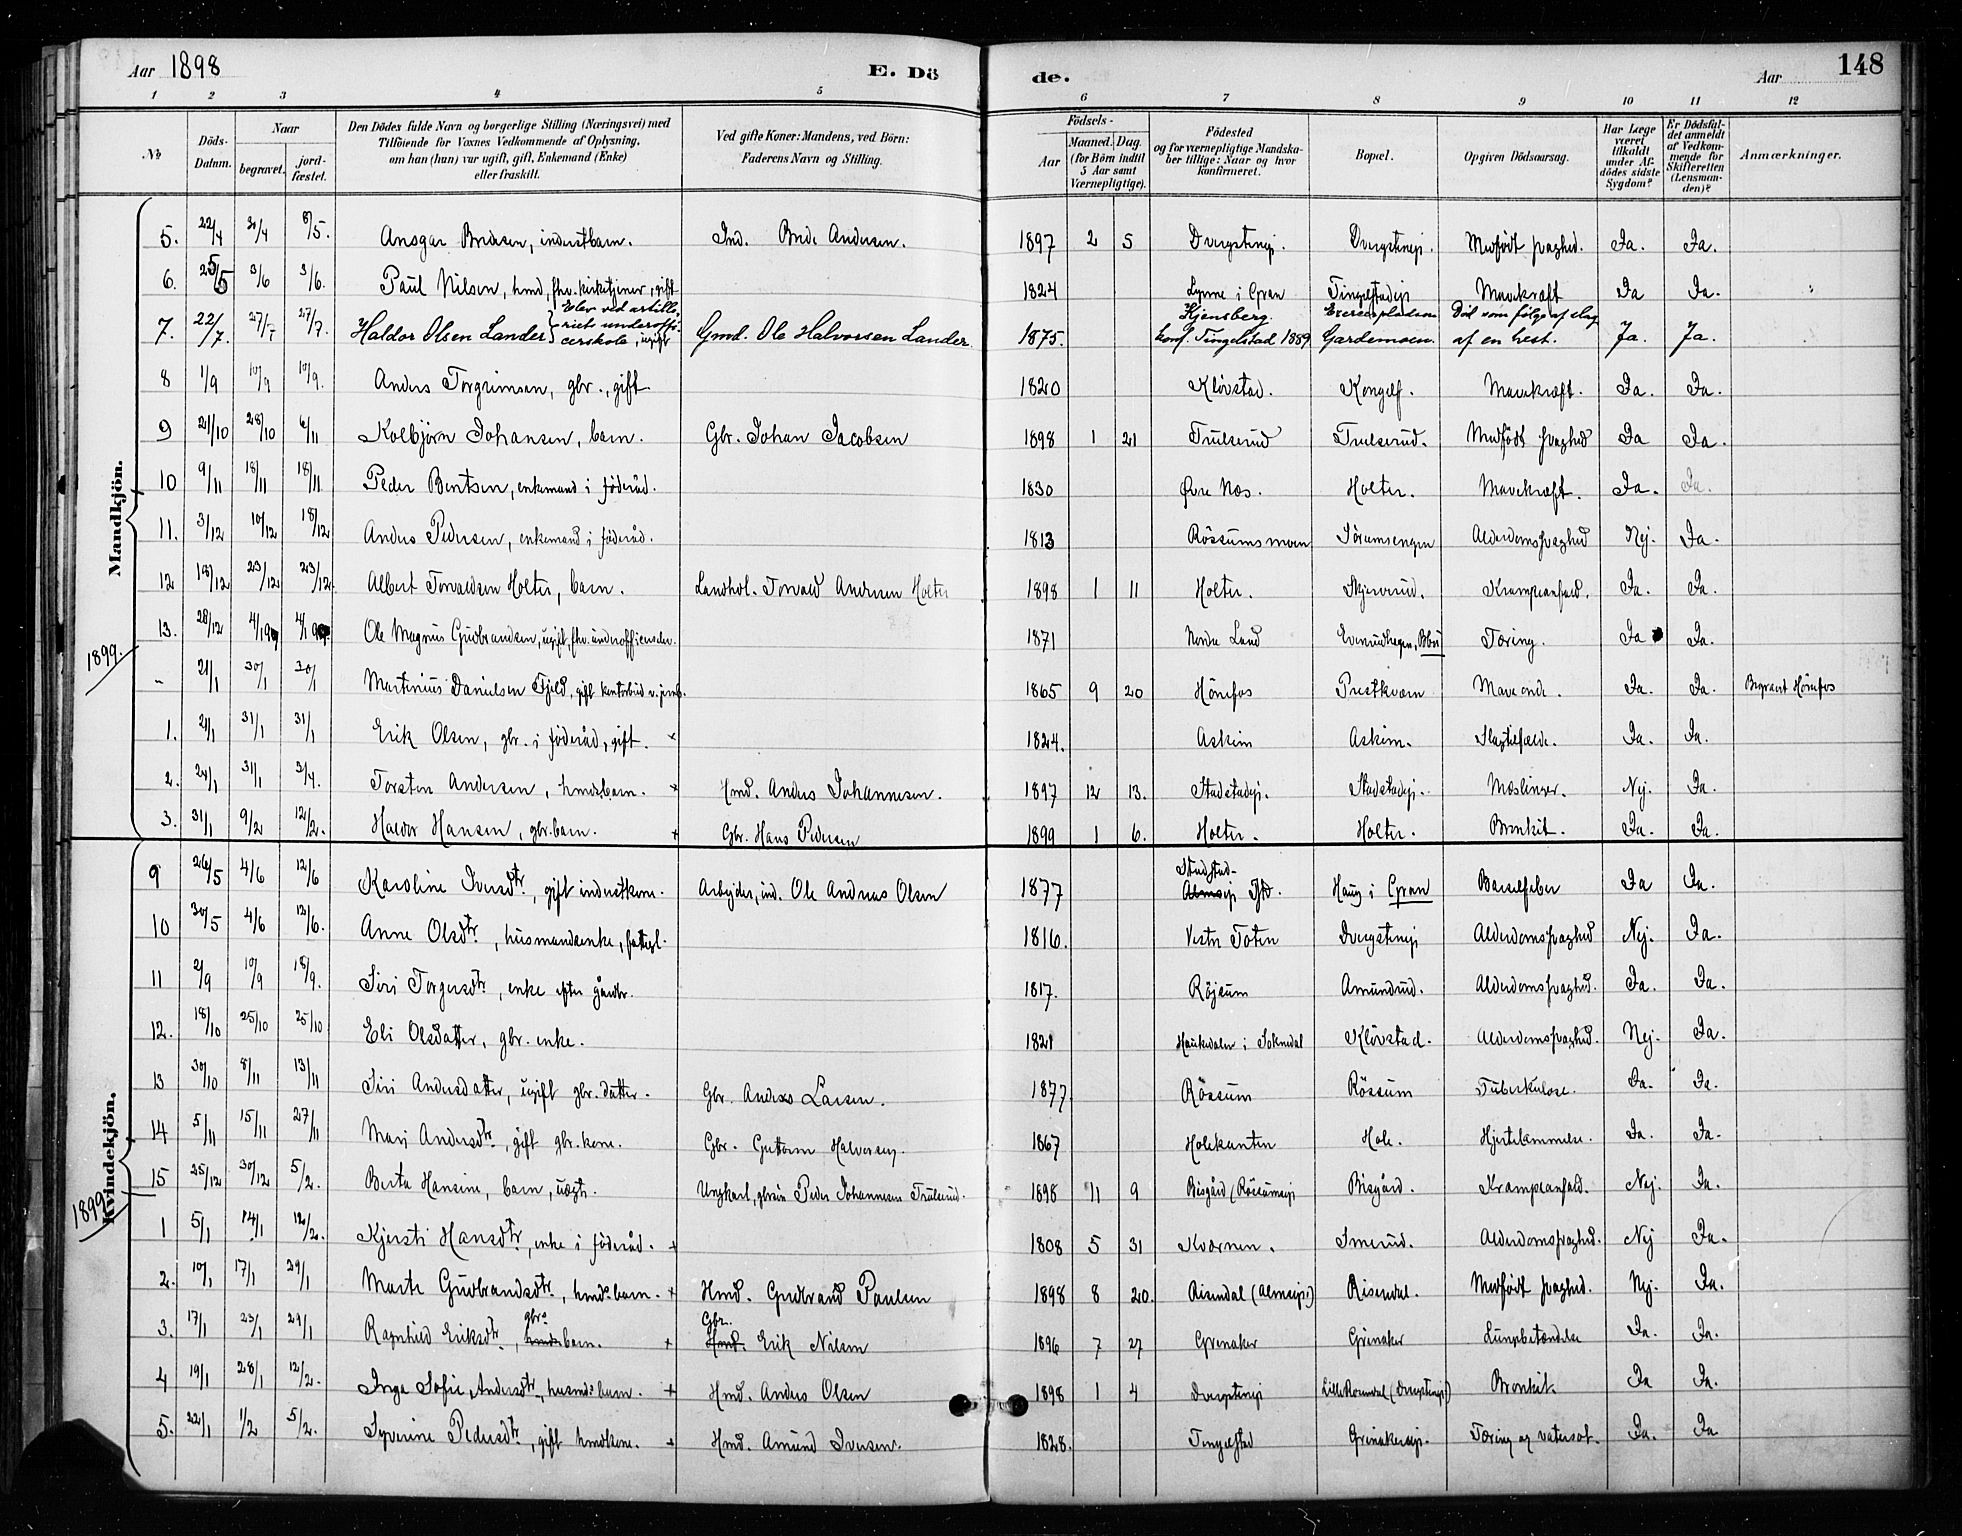 Aar 1898 E. Dö de. Aar 148
1 2 3 4 5 6 7 8 9 10 11 12
No Döds-Datum. Naar begravet. jordfæstet. Den Dödes fulde Navn og borgerlige Stilling (Næringsvei) med Tilföiende for Voxnes Vedkommende af Oplysning, om han (hun) var ugift, gift, Enkemand (Enke) eller fraskilt. Ved gifte Koner: Mandens, ved Börn: Faderens Navn og Stilling. Födsels- Aar Maaned. Dag. (for Börn indtil 5 Aar samt Værnepligtige). Födested og for værnepligtige Mandskaber tillige: Naar og hvor konfirmeret. Bopæl. Opgiven Dödsaarsag. Har Læge været tilkaldt under Afdödes sidste Sygdom? Er Dödsfaldet anmeldt af Vedkommende for Skifteretten (Lensmanden)? Anmærkninger.
Mandkjön.
5. 22/4 30/4 8/5. Ansgar Bredesen, inderstbarn. Ind. Brede Andersen. 1897 2 5 Dvergsteneji. Dvergsteneji. Medfödt svaghed. Ja. Ja.
6. 25/5 3/6 3/6. Paul Nilsen, hmd, fhv. kirketjener, gift 1824 Lynne i Gran Tingelstadeje Mavekræft Ja Ja. "
7. 22/7. 27/7 27/7. Haldor Olsen Lander Elev ved artilleriets underofficerskole, ugift Gmd. Ole Halvorsen Lander. 1875. Kjensberg. konf. Tingelstad 1889 Exercerpladsen Gardemoen. Död som fölge af slag af en hest. Ja. Ja.
8 1/9 10/9 10/9. Anders Torgrimsen, gbr., gift 1820 Klövstad. Kongelf. Mavekræft. Ja. Ja.
9 21/10 28/10 6/11 Kolbjörn Johansen, barn. Gbr. Johan Jacobsen 1898 1 21 Trulserud Trulserud. Medfödt svaghed Ja Ja.
10 9/11 18/11 18/11 Peder Bentsen, enkemand i föderåd. 1830 Øvre Næs. Holter. Mavekræft. Ja. Ja.
11. 3/12 10/12 18/12 Anders Pedersen, enkemand i föderåd. 1813 Rössumsmoen Sörumsengen Alderdomssvaghed Nej. Ja.
12 18/12 23/12 23/12. Albert Torvaldsen Holter, barn. Landhdl. Torvald Andersen Holter 1898 1 11 Holter. Skjerverud. Krampeanfald. Ja. Ja.
13. 28/12 4/1 99 4/1 99 Ole Magnus Gudbrandsen, ugift, fhv. underofficerselev. 1871 Nordre Land Tæring. Ja Ja.
1899.
" 21/1 30/1 30/1 Martinius Danielsen Fjeld, gift kontorbud v. jernb. 1865 9 20 Hönefos Prestkværn Maveonde. Ja. Ja. Begravet Hönefos
1. 21/1 31/1 31/1 Erik Olsen, gbr. i föderåd, gift. × 1824. Askim Askim. Slagtilfælde. Ja. Ja.
2. 24/1 31/1 3/4. Torsten Andersen, hmdsbarn. × Hmd. Anders Johannesen. 1897 12 13. Stadstadeje. Stadstadeje. Mæslinger. Nej. Ja.
3. 31/1 9/2 12/2. Haldor Hansen, gbr.barn. + Gbr. Hans Pedersen 1899 1 6. Holter. Holter. Bronkit. Ja. Ja.
Kvindekjön.
9 26/5 4/6 12/6 Karoline Iversdtr., gift inderstkone. Arbejder, ind. Ole Andreas Olsen 1877 Haug i Gran Barselfeber Ja Ja.
10 30/5 4/6 12/6. Anne Olsdtr., husmandsenke, fattigl. 1816. Vestre Toten Dvergsteneje Alderdomssvaghed Nej. Ja.
11 2/9 10/9 18/9. Siri Torgersdtr, enke efter gårdbr. 1817. Röjsum Amundrud. Alderdomssvaghed. Ja. Ja.
12. 18/10 25/10 25/10 Eli Olsdatter, gbr. enke. 1821 Haukedalen i Soknedal Klövstad. Alderdomssvaghed. Nej. Ja.
13 30/10 8/11 13/11 Siri Andersdatter, ugift gbr. datter. Gbr. Anders Larsen. 1877. Rössum Rössum Tuberkulose. Ja. Ja.
14 5/11 15/11 27/11 Mari Andersdtr., gift gbr.kone. Gbr. Guttorm Halvorsen. 1867 Holekanten Hole. Hjertelammelse. Ja. Ja.
15 25/12 30/12 5/2. Berta Hansine, barn, uægt. Ungkarl, gbrsön Peder Johannesen Trulserud. 1898 11 9 Bisgård (Rössumseje Bisgård. Krampeanfald. Nej. Ja.
1899
1 5/1 14/1 12/2. Kjersti Hansdtr., enke i föderåd. + 1808 5 31 Kværnen. Smerud. Alderdomssvaghed. Nej Ja.
2. 10/1 17/1 29/1 Marte Gudbrandsdtr., hmds.barn. + Hmd. Gudbrand Paulsen 1898 8 20. Risendal (Almseje) Risendal. Medfödt svaghed. Nej. Ja.
3. 17/1 23/1 29/1 Ragnhild Eriksdtr., gbrs hmdsbarn. + Gbr. Hmd. Erik Nilsen 1896 7 27 Grinaker Grinaker Lungebetændelse Ja. Ja.
4 19/1 28/1 12/2. Inga Sofie Andersdtr., husmdsbarn. + Hmd. Anders Olsen 1898 1 4 Dvergsteneje (Dvergsteneje) Bronkit. Ja Ja.
5. 22/1 1/2 5/2. Syverine Pedersdtr., gift hmdkone. + Hmd. Amund Iversen. 1828. Tingelstad Grinakereje. Tæring og vatersot. Ja. Ja